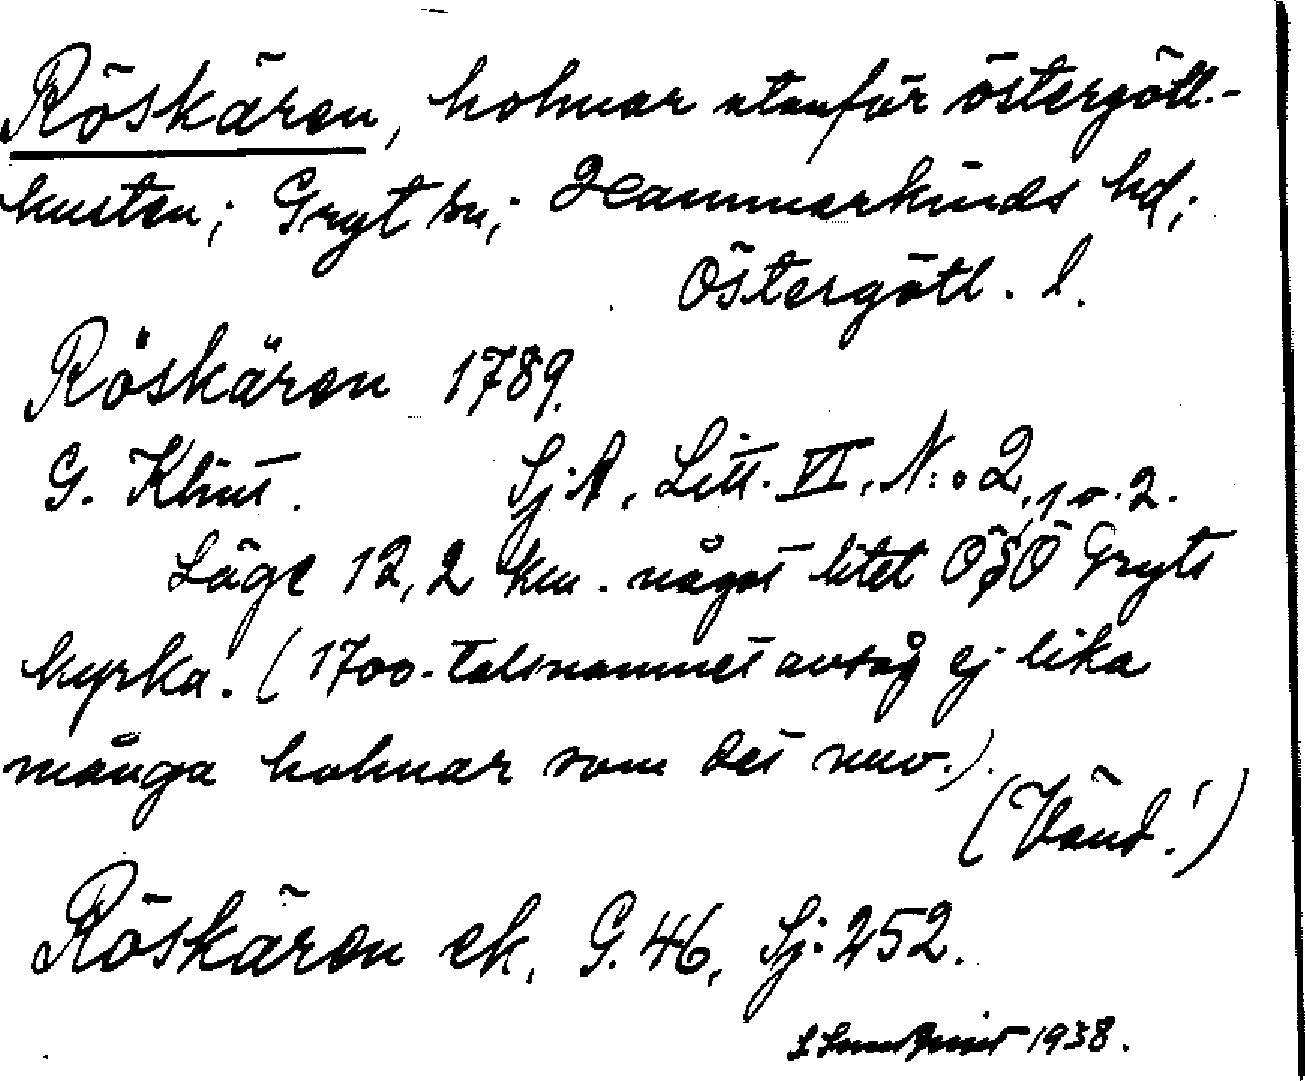 Röskären, holmar utanför östergötl.-
kusten; Gryt sn; Hammarkinds hd;
Östergötl. l.
Röskären 1789.
G. Klint. Sj:A, Litt. VI, N:o 2, 1 o. 2.
Läge 12,2 km. något litet ÖSÖ Gryts
kyrka. (1700-talsnamnet avsåg ej lika
många holmar som det nuv.).
(Vänd!)
Röskären ek. G. 46, Sj: 252.
1938.